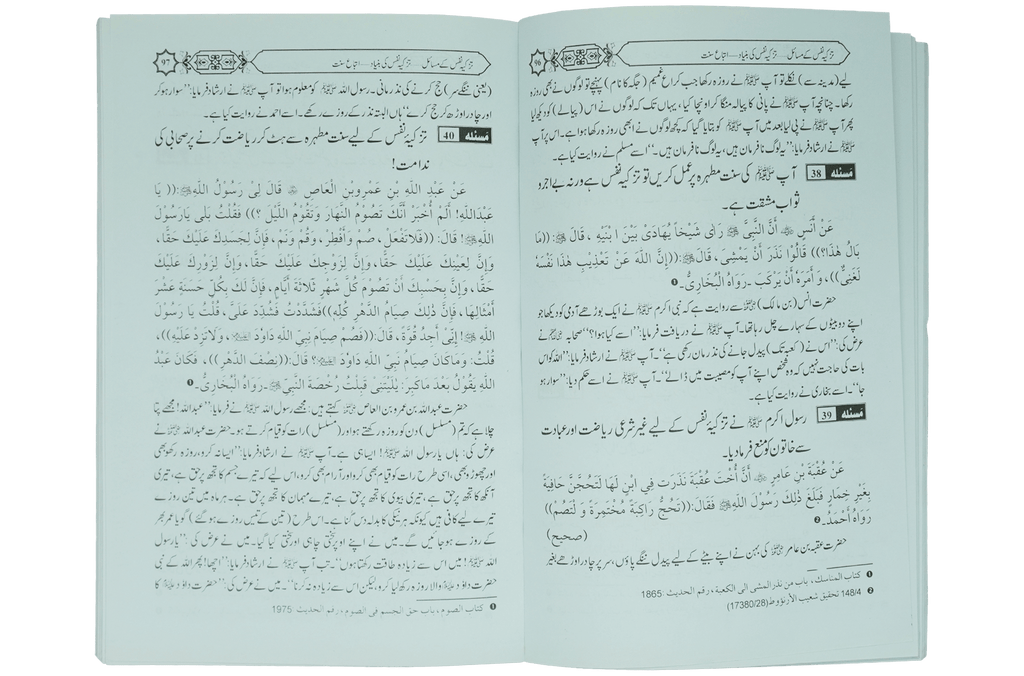 96
تزکیہ نفس کے مسائل — تزکیہ نفس کی بنیاد — اتباع سنت
لیے (مدینہ سے) نکلے تو آپ ﷺ نے روزہ رکھا جب کراع غمیم (جگہ کا نام) پہنچے تو لوگوں نے بھی روزہ
رکھا۔ چنانچہ آپ ﷺ نے پانی کا پیالہ منگا کر اونچا کیا، یہاں تک کہ لوگوں نے اس (پیالے) کو دیکھ لیا
پھر آپ ﷺ نے پی لیا بعد میں آپ ﷺ کو بتایا گیا کہ کچھ لوگوں نے ابھی روزہ رکھا ہوا ہے۔ اس پر آپ
ﷺ نے ارشاد فرمایا: ’’یہ لوگ نافرمان ہیں، یہ لوگ نافرمان ہیں۔‘‘ اسے مسلم نے روایت کیا ہے۔
مسئله 38 آپ ﷺ کی سنت مطہرہ پر عمل کریں تو تزکیہ نفس ہے ورنہ بے اجر و
ثواب مشقت ہے۔
عَنْ أَنَسٍ ؓ أَنَّ النَّبِیَّ ﷺ رَاٰی شَیْخًا یُهَادَیٰ بَیْنَ ابْنَیْهِ ، قَالَ ﷺ:((مَا
بَالُ هٰذَا؟)) قَالُوْا نَذَرَ أَنْ یَمْشِیَ، قَالَ ﷺ:((إِنَّ اللّٰهَ عَنْ تَعْذِیْبِ هٰذَا نَفْسَهُ
لَغَنِیٌّ))، وَ أَمَرَهُ أَنْ یَرْکَبَ ۔ رَوَاهُ الْبُخَارِیُّ۔❶
حضرت انس (بن مالک) ؓ سے روایت ہے کہ نبی اکرم ﷺ نے ایک بوڑھے آدمی کو دیکھا جو
اپنے دو بیٹوں کے سہارے چل رہا تھا۔ آپ ﷺ نے دریافت فرمایا: ’’اسے کیا ہوا؟‘‘ صحابہ ؓ نے
عرض کی: ’’اس نے (کعبہ تک) پیدل جانے کی نذر مان رکھی ہے‘‘۔ آپ ﷺ نے ارشاد فرمایا: ’’اللہ کو اس
بات کی حاجت نہیں کہ وہ شخص اپنے آپ کو مصیبت میں ڈالے‘‘۔ آپ ﷺ نے اسے حکم دیا: ’’سوار ہو
جا‘‘۔ اسے بخاری نے روایت کیا ہے۔
مسئله 39 رسول اکرم ﷺ نے تزکیہ نفس کے لیے غیر شرعی ریاضت اور عبادت
سے خاتون کو منع فرما دیا۔
عَنْ عُقْبَةَ بْنِ عَامِرٍ ؓ أَنَّ أُخْتَ عُقْبَةَ نَذَرَت فِی ابْنٍ لَهَا لَتَحُجَّنَّ حَافِیَةً
بِغَیْرِ خِمَارٍ فَبَلَغَ ذٰلِکَ رَسُوْلَ اللّٰهِ ﷺ فَقَالَ:((تَحُجُّ رَاکِبَةً مُخْتَمِرَةً وَ لْتَصُمْ))
رَوَاهُ أَحْمَدُ۔❷ (صحیح)
حضرت عقبہ بن عامر ؓ کی بہن نے اپنے بیٹے کے لیے پیدل ننگے پاؤں، سر پر چادر اوڑھے بغیر
❶ کتاب المناسك، باب من نذر المشی الی الکعبة، رقم الحدیث: 1865
❷ 148/4 تحقیق شعیب الأرنؤوط (17380/28)
97
تزکیہ نفس کے مسائل — تزکیہ نفس کی بنیاد — اتباع سنت
(یعنی ننگے سر) حج کرنے کی نذر مانی۔ رسول اللہ ﷺ کو معلوم ہوا تو آپ ﷺ نے ارشاد فرمایا: ’’سوار ہو کر
اور چادر اوڑھ کر حج کرے‘‘ ہاں البتہ نذر کے روزے رکھے۔ اسے احمد نے روایت کیا ہے۔
مسئله 40 تزکیہ نفس کے لیے سنت مطہرہ سے ہٹ کر ریاضت کرنے پر صحابی کی
ندامت!
عَنْ عَبْدِ اللّٰهِ بْنِ عَمْرِو بْنِ الْعَاصِ ؓ قَالَ لِیْ رَسُوْلُ اللّٰهِ ﷺ:(( یَا
عَبْدَاللّٰهِ! أَلَمْ أُخْبَرْ أَنَّکَ تَصُوْمُ النَّهَارَ وَتَقُوْمُ اللَّیْلَ ؟)) فَقُلْتُ بَلٰی یَارَسُوْلَ
اللّٰهِ ﷺ! قَالَ: ((فَلَا تَفْعَلْ، صُمْ وَأَفْطِرْ، وَقُمْ وَنَمْ، فَإِنَّ لِجَسَدِکَ عَلَیْکَ حَقًّا،
وَإِنَّ لِعَیْنِکَ عَلَیْکَ حَقًّا، وَإِنَّ لِزَوْجِکَ عَلَیْکَ حَقًّا، وَإِنَّ لِزَوْرِکَ عَلَیْکَ
حَقًّا، وَإِنَّ بِحَسْبِکَ أَنْ تَصُوْمَ کُلَّ شَهْرٍ ثَلَاثَةَ أَیَّامٍ، فَإِنَّ لَکَ بِکُلِّ حَسَنَةٍ عَشْرَ
أَمْثَالِهَا، فَإِنَّ ذٰلِکَ صِیَامُ الدَّهْرِ کُلِّهِ)) فَشَدَّدْتُ فَشُدِّدَ عَلَیَّ، قُلْتُ یَا رَسُوْلَ
اللّٰهِ ﷺ! إِنِّیْ أَجِدُ قُوَّةً، قَالَ:((فَصُمْ صِیَامَ نَبِیِّ اللّٰهِ دَاوُدَ ؑ، وَلَا تَزِدْ عَلَیْهِ))،
قُلْتُ: وَمَا کَانَ صِیَامُ نَبِیِّ اللّٰهِ دَاوُدَ ؑ؟ قَالَ:((نِصْفَ الدَّهْرِ))، فَکَانَ عَبْدُ
اللّٰهِ یَقُوْلُ بَعْدَ مَاکَبِرَ: یٰلَیْتَنِیْ قَبِلْتُ رُخْصَةَ النَّبِیِّ ﷺ۔ رَوَاهُ الْبُخَارِیُّ۔❶
حضرت عبداللہ بن عمرو بن العاص ؓ کہتے ہیں: مجھے رسول اللہ ﷺ نے فرمایا: ’’عبداللہ! مجھے پتا
چلا ہے کہ تم (مسلسل) دن کو روزہ رکھتے ہو اور (مسلسل) رات کو قیام کرتے ہو۔ حضرت عبداللہ ؓ نے
عرض کی: ہاں یا رسول اللہ ﷺ! ایسا ہی ہے۔ آپ ﷺ نے ارشاد فرمایا: ’’ایسا نہ کرو، روزہ رکھو بھی
اور چھوڑو بھی، اسی طرح رات کو قیام بھی کرو اور آرام بھی کرو، اس لیے کہ تیرے جسم کا تجھ پر حق ہے، تیری
آنکھ کا تجھ پر حق ہے، تیری بیوی کا تجھ پر حق ہے، تیرے مہمان کا تجھ پر حق ہے۔ ہر ماہ میں تین روزے
تیرے لیے کافی ہیں کیونکہ ہر نیکی کا بدلہ دس گنا ہے۔ اس طرح (تین کے تیس روزے ہو گئے) گویا عمر بھر
کے روزے ہو جائیں گے۔ میں نے اپنے اوپر سختی چاہی اور سختی کیا گیا۔ میں نے عرض کی: ’’یا رسول
اللہ ﷺ! میں اس سے زیادہ طاقت رکھتا ہوں‘‘۔ تب آپ ﷺ نے ارشاد فرمایا: ’’اچھا! پھر اللہ کے نبی
حضرت داؤد ؑ والا روزہ رکھ لیا کرو، لیکن اس سے زیادہ نہ کرنا‘‘۔ میں نے عرض کی: ’’حضرت داؤد ؑ کا
❶ کتاب الصوم، باب حق الجسم فی الصوم، رقم الحدیث: 1975